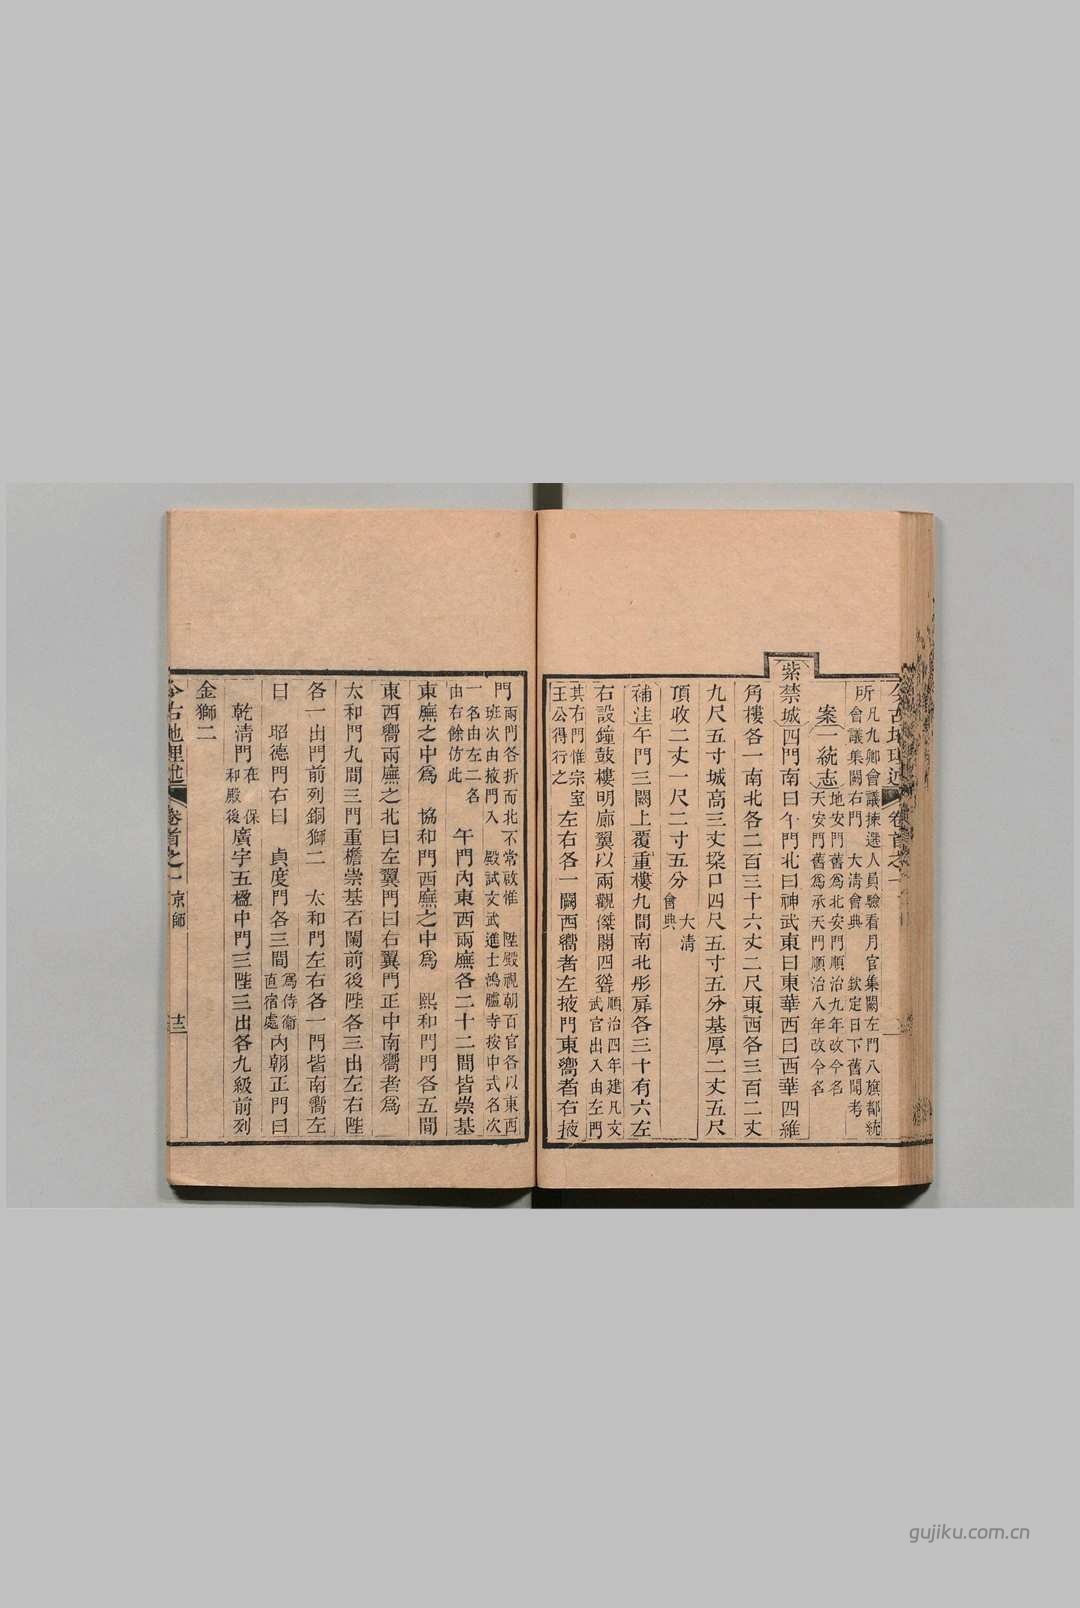 今古地理述 卷首之一
所凡九卿會議揀選人員驗看月官集闕左門八旗都統
會議集闕右門 大清會典 欽定日下舊聞考
案一統志地安門舊爲北安門順治九年改今名
天安門舊爲承天門順治八年改今名
紫禁城四門南曰午門北曰神武東曰東華西曰西華四維
角樓各一南北各二百三十六丈二尺東西各三百二丈
九尺五寸城高三丈垛口四尺五寸五分基厚二丈五尺
頂收二丈一尺二寸五分 大清
會典
補注午門三闕上覆重樓九間南北彤扉各三十有六左
右設鐘鼓樓明廊翼以兩觀傑閣四聳順治四年建凡文
武官出入由左門
其右門惟宗室
王公得行之 左右各一闕西嚮者左掖門東嚮者右掖
門兩門各折而北不常啟惟 陞殿視朝百官各以東西
班次由掖門入 殿試文武進士鴻臚寺按中式名次
一名由左二名
由右餘仿此 午門內東西兩廡各二十二間皆崇基
東廡之中爲 協和門西廡之中爲 熙和門門各五間
東西嚮兩廡之北曰左翼門曰右翼門正中南嚮者爲
太和門九間三門重檐崇基石闌前後陛各三出左右陛
各一出門前列銅獅二 太和門左右各一門皆南嚮左
曰 昭德門右曰 貞度門各三間爲侍衛
直宿處內朝正門曰
乾清門在 保
和殿後廣字五楹中門三陛三出各九級前列
金獅二
今古地理述 卷首之一 京師 十三
gujiku.com.cn